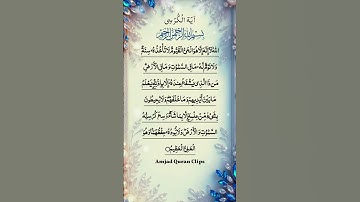 آيَةُ الْكُرْسِي
بِسْمِ اللهِ الرَّحْمٰنِ الرَّحِيْمِ
اَللهُ لَآ اِلٰهَ اِلَّا هُوَ اَلْحَيُّ الْقَيُّوْمُ لَا تَأْخُذُهٗ سِنَةٌ
وَّلَا نَوْمٌ لَهٗ مَا فِي السَّمٰوٰتِ وَمَا فِي الْاَرْضِ
مَنْ ذَا الَّذِيْ يَشْفَعُ عِنْدَهٗٓ اِلَّا بِاِذْنِهٖ يَعْلَمُ
مَا بَيْنَ اَيْدِيْهِمْ وَمَا خَلْفَهُمْ وَلَا يُحِيْطُوْنَ
بِشَيْءٍ مِّنْ عِلْمِهٖٓ اِلَّا بِمَا شَآءَ وَسِعَ كُرْسِيُّهُ
السَّمٰوٰتِ وَالْاَرْضَ وَلَا يَئُوْدُهٗ حِفْظُهُمَا وَهُوَ
الْعَلِيُّ الْعَظِيْمُ
Amjad Quran Clips